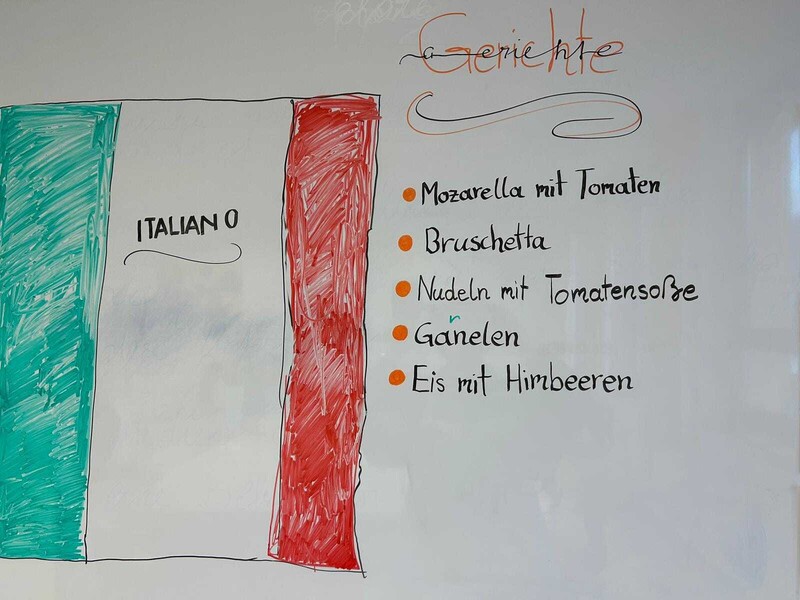 Gerichte
ITALIANO
Mozarella mit Tomaten
Bruschetta
Nudeln mit Tomatensoße
Garnelen
Eis mit Himbeeren